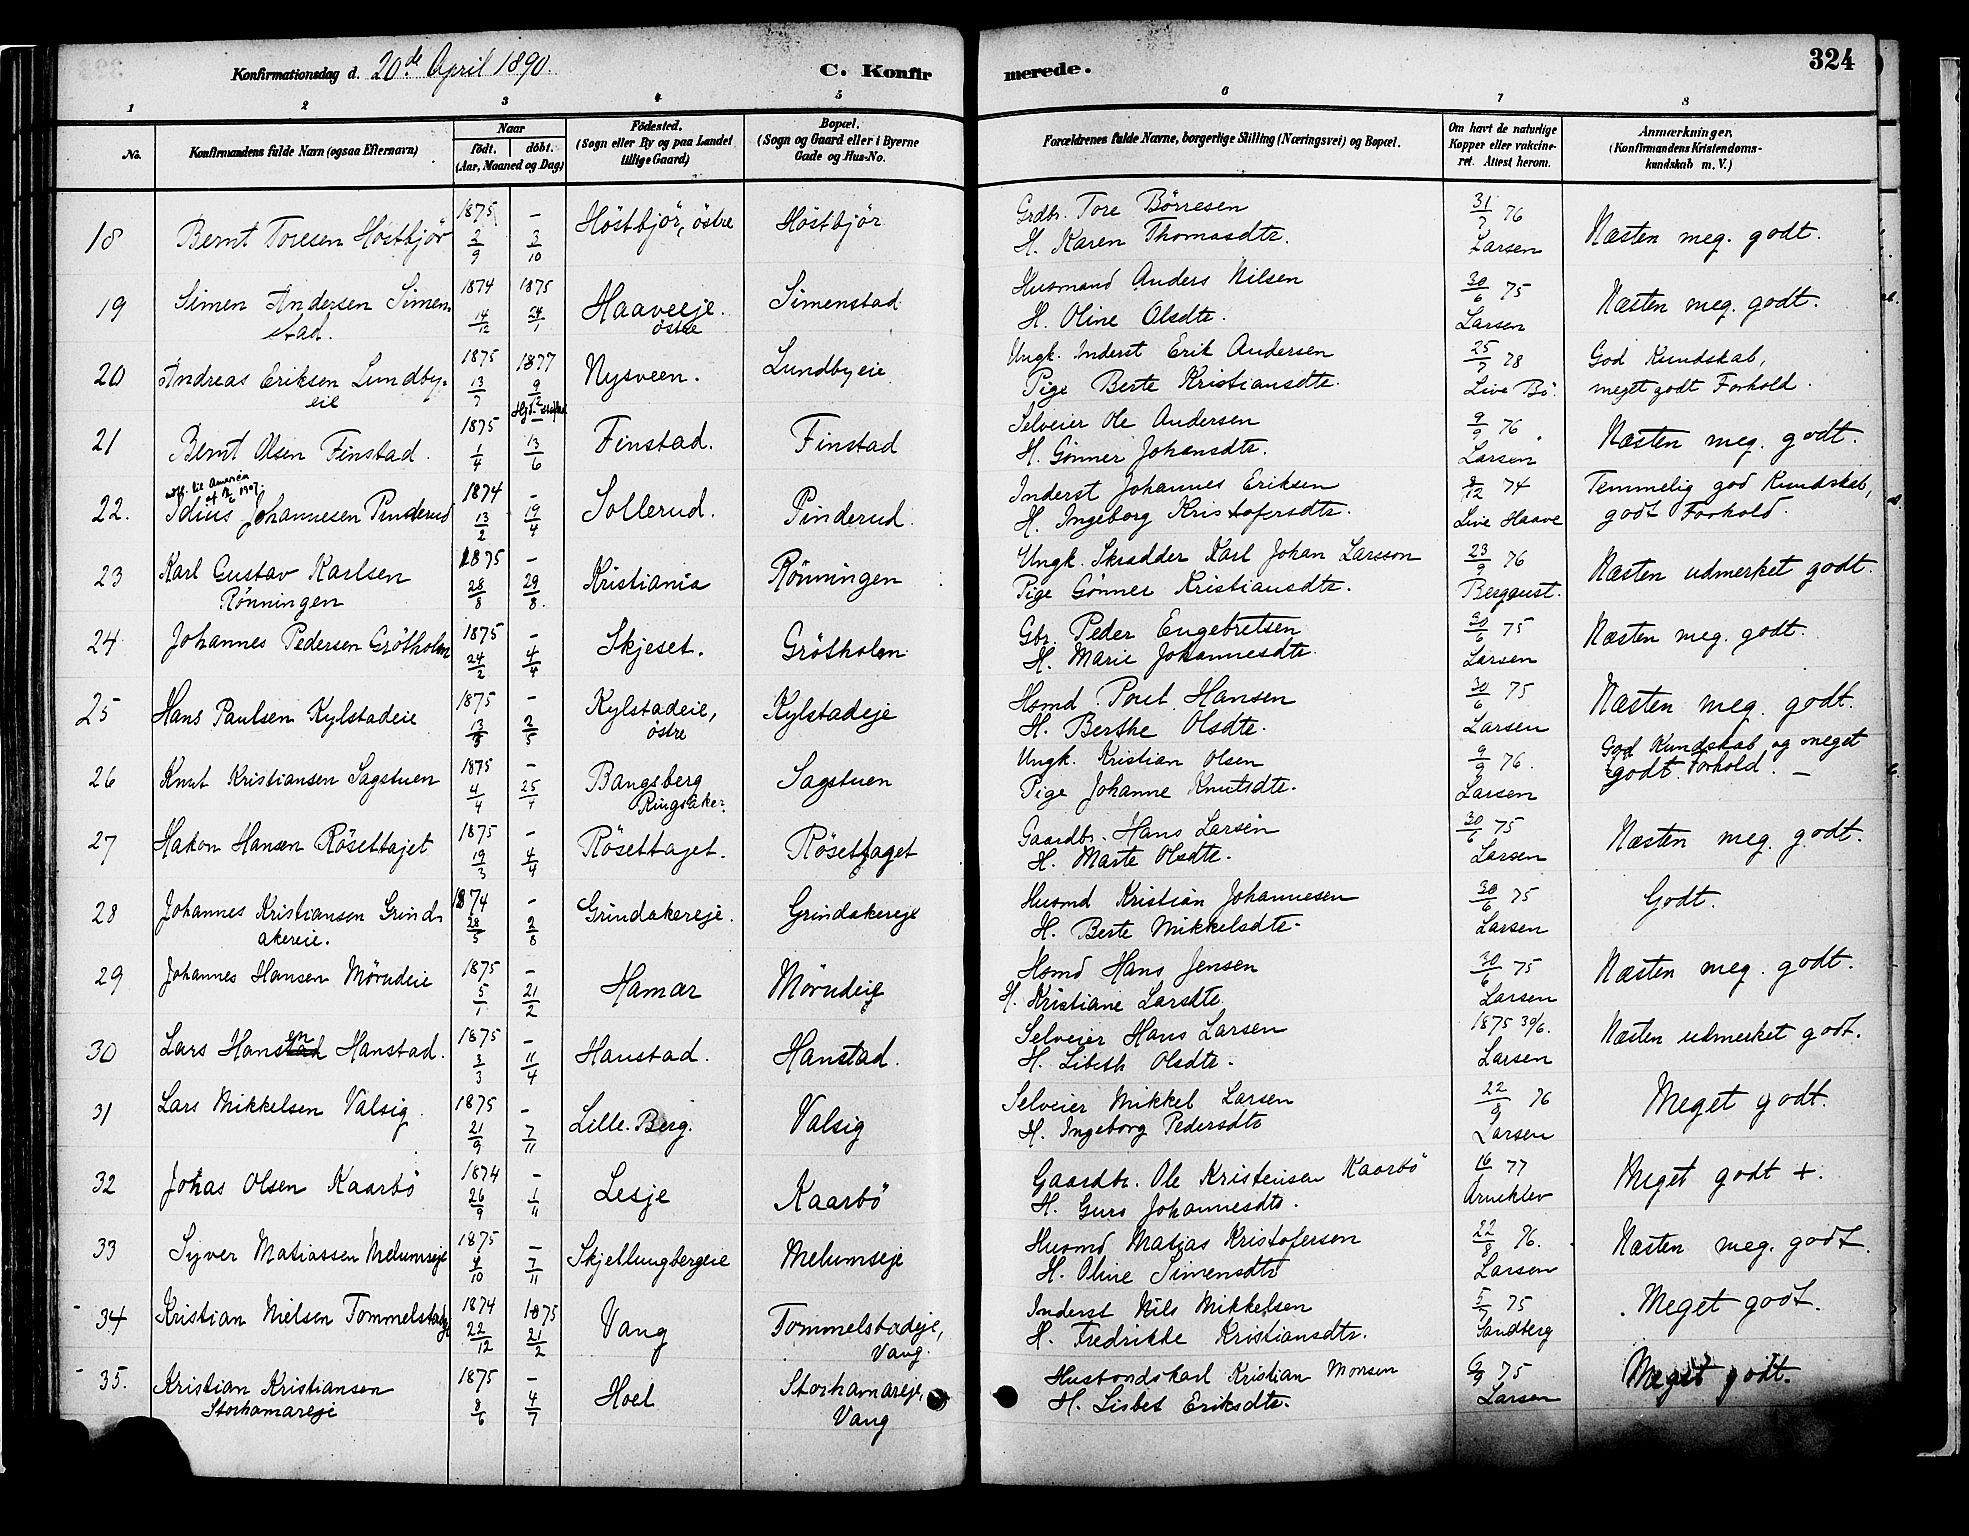 Konfirmationsdag d. 20de April 1890.
C. Konfir
merede.
324
1 2 3 4 5 6 7 8
No.
Konfirmandens fulde Navn (ogsaa Efternavn)
Naar
födt. döbt.
(Aar, Maaned og Dag)
Födested.
(Sogn eller By og paa Landet
tillige Gaard)
Bopæl.
(Sogn og Gaard eller i Byerne
Gade og Hus-No.
Forældrenes fulde Navne, borgerlige Stilling (Næringsvei) og Bopæl.
Om havt de naturlige
Kopper eller vakcine-
ret. Attest herom.
Anmærkninger.
(Konfirmandens Kristendoms-
kundskab m. V.)
18 Bernt Toresen Höstbjör 1875 2/9 – 3/10 Höstbjör, östre Höstbjör
Grdbr. Tore Börresen
H. Karen Thomasdtr.
31/7 76
Larsen
Næsten meg. godt.
19 Simen Andersen Simen-
stad.
1874 14/12 1875 24/1 Haaveeje.
östre
Simenstad
Husmand Anders Nilsen
H. Oline Olsdtr.
30/6 75
Larsen
Næsten meg. godt.
20 Andreas Eriksen Lundby-
eie
1875 13/7 1877 9/12 Nysveen. Lundbyeie
Ungk. Inderst Erik Andersen
Pige Berte Kristiansdtr.
25/7 78
Live Bö.
God Kundskab,
meget godt Forhold.
21 Bernt Olsen Finstad. 1875 1/4 13/6 Finstad. Finstad
Selveier Ole Andersen
H. Gönner Johansdtr.
9/9 76
Larsen
Næsten meg. godt.
til America
1907.
22. Idius Johannesen Pinderud 1874 13/2 – 19/4 Sollerud. Pinderud.
Inderst Johannes Eriksen
H. Ingeborg Kristofersdtr.
/12 74
Live Haave
Temmelig god Kundskab,
godt Forhold.
23 Karl Gustav Karlsen
Rönningen
1875 28/8 – 29/8. Kristiania Rönningen
Ungk. Skrædder Karl Johan Larsson
Pige Gönner Kristiansdtr.
23/9 76
Bergqust.
Næsten udmerket godt.
24 Johannes Pedersen Grötholm 1875 24/2 – 4/4 Skjeset. Grötholm
Gbr. Peder Engebretsen
H. Marie Johannesdtr.
30/6 75
Larsen
Næsten meg. godt.
25 Hans Paulsen Kylstadeie 1875 13/3 – 2/5 Kylstadeie,
östre
Kylstadeje
Hsmd. Poul Hansen
H. Berthe Olsdtr.
30/6 75
Larsen
Næsten meg. godt.
26 Knut Kristiansen Sagstuen 1875 4/4 – 25/4 Bangsberg
Ringsaker.
Sagstuen
Ungk. Kristian Olsen
Pige Johanne Knutsdtr.
9/9 76.
Larsen
God Kundskab og meget
godt Forhold. –
27 Hakon Hansen Rösettajet 1875 19/3 – 4/4 Rösettaget. Rösettaget
Gaardbr. Hans Larsen
H. Marte Olsdtr.
30/6 75
Larsen
Næsten meg. godt.
28 Johannes Kristiansen Grind-
akereie.
1874 28/5 – 2/8 Grindakereje. Grindakereje
Husmd Kristian Johannesen
H. Berte Mikkelsdtr.
30/6 75
Larsen
Godt.
29 Johannes Hansen Mörudeie 1875 5/1 – 21/2 Hamar Mörudeie
Hsmd Hans Jensen
H. Kristiane Larsdtr.
30/6 75
Larsen
Næsten meg. godt.
30 Lars Hansen Hanstad. 1875 3/3 – 11/4 Hanstad. Hanstad.
Selveier Hans Larsen
H. Libeth Olsdtr.
1875 30/6.
Larsen
Næsten udmerket godt.
31 Lars Mikkelsen Valsig. 1875 21/9 – 7/11 Lille-Berg. Valsig
Selveier Mikkel Larsen
H. Ingeborg Pedersdtr
22/9 76
Larsen
Meget godt.
32 Johas Olsen Kaarbö 1874 26/9 – 1/11 Lesje Kaarbö
Gaardbr. Ole Kristensen Kaarbö
H. Guro Johannesdtr.
16/ 77
Arneklev
Meget godt +.
33 Syver Matiassen Melumseje 1875 9/10 – 7/11 Skjellungbergeie Melumseje
Husmd Matias Kristofersen
H. Oline Simensdtr
22/8 76.
Larsen
Næsten meg. godt.
34 Kristian Nielsen Tommelstadeje 1874 22/12 1875 21/2 Vang Tommelstadeje,
Vang.
Inderst Nils Mikkelsen
H. Fredrikke Kristiansdtr.
5/7 75
Sandberg
Meget godt.
35. Kristian Kristiansen
Storhamareje
1875 8/6 – 4/7 Hoel Storhamareje,
Vang
Husbondskarl Kristian Monsen
H. Lisbet Eriksdtr.
6/9 75
Larsen
Meget godt.